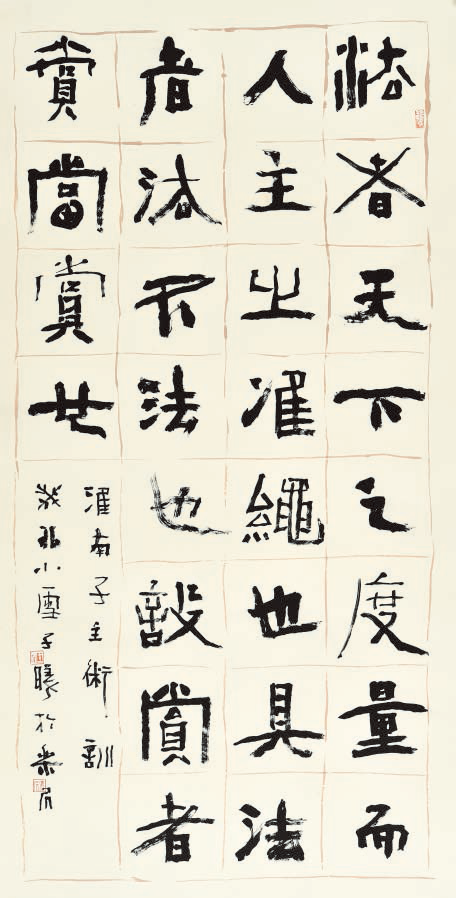 法者天下之度量而
人主之准繩也具法
者法不法也設賞者
賞當賞也
淮南子主術訓
癸卯小雪子曦於